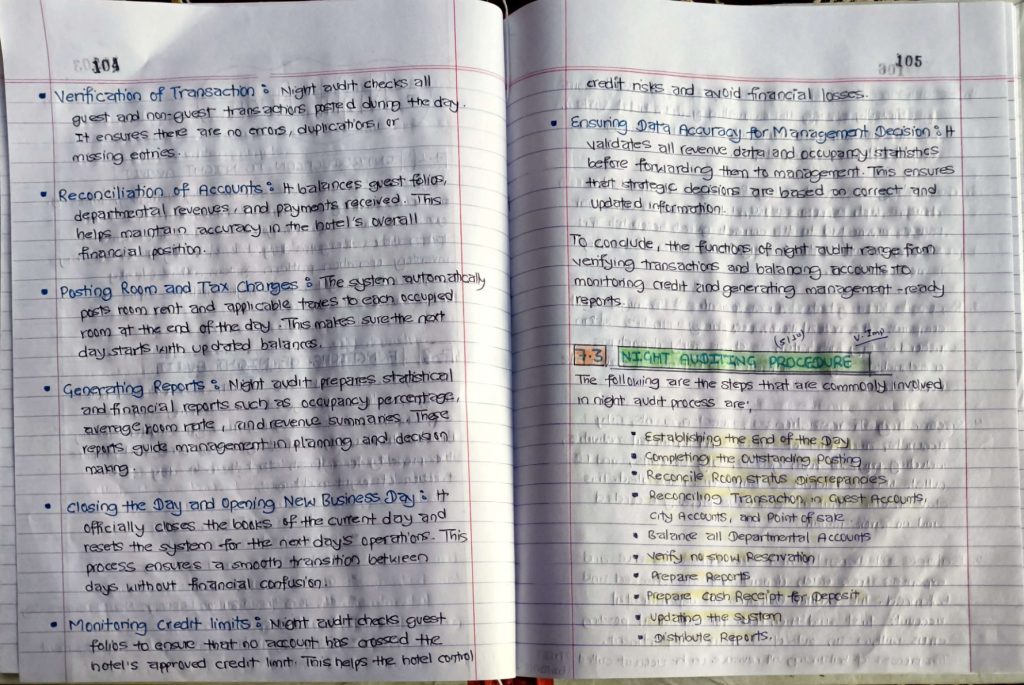 104
• Verification of Transaction : Night audit checks all
guest and non-guest transactions posted during the day.
It ensures there are no errors, duplications, or
missing entries.
• Reconciliation of Accounts : It balances guest folios,
departmental revenues, and payments received. This
helps maintain accuracy in the hotel's overall
financial position.
• Posting Room and Tax Charges : The system automatically
posts room rent and applicable taxes to each occupied
room at the end of the day. This makes sure the next
day starts with updated balances.
• Generating Reports : Night audit prepares statistical
and financial reports such as occupancy percentage,
average room rate, and revenue summaries. These
reports guide management in planning and decision
making.
• Closing the Day and Opening New Business Day : It
officially closes the books of the current day and
resets the system for the next day's operations. This
process ensures a smooth transition between
days without financial confusion.
• Monitoring Credit limits : Night audit checks guest
folios to ensure that no account has crossed the
hotel's approved credit limit. This helps the hotel control
105
credit risks and avoid financial losses.
• Ensuring Data Accuracy for Management Decision : It
validates all revenue data and occupancy statistics
before forwarding them to management. This ensures
that strategic decisions are based on correct and
updated information.
To conclude, the functions of night audit range from
verifying transactions and balancing accounts to
monitoring credit and generating management-ready
reports.
(5/10) V. Imp
7.3 NIGHT AUDITING PROCEDURE
The following are the steps that are commonly involved
in night audit process are;
• Establishing the End of the Day
• Completing the Outstanding Posting
• Reconcile Room status Discrepancies
• Reconciling Transaction in Guest Accounts,
City Accounts, and Point of sale
• Balance all Departmental Accounts
• Verify no show Reservation
• Prepare Reports
• Prepare Cash Receipt for Deposit
• Updating the System
• Distribute Reports.